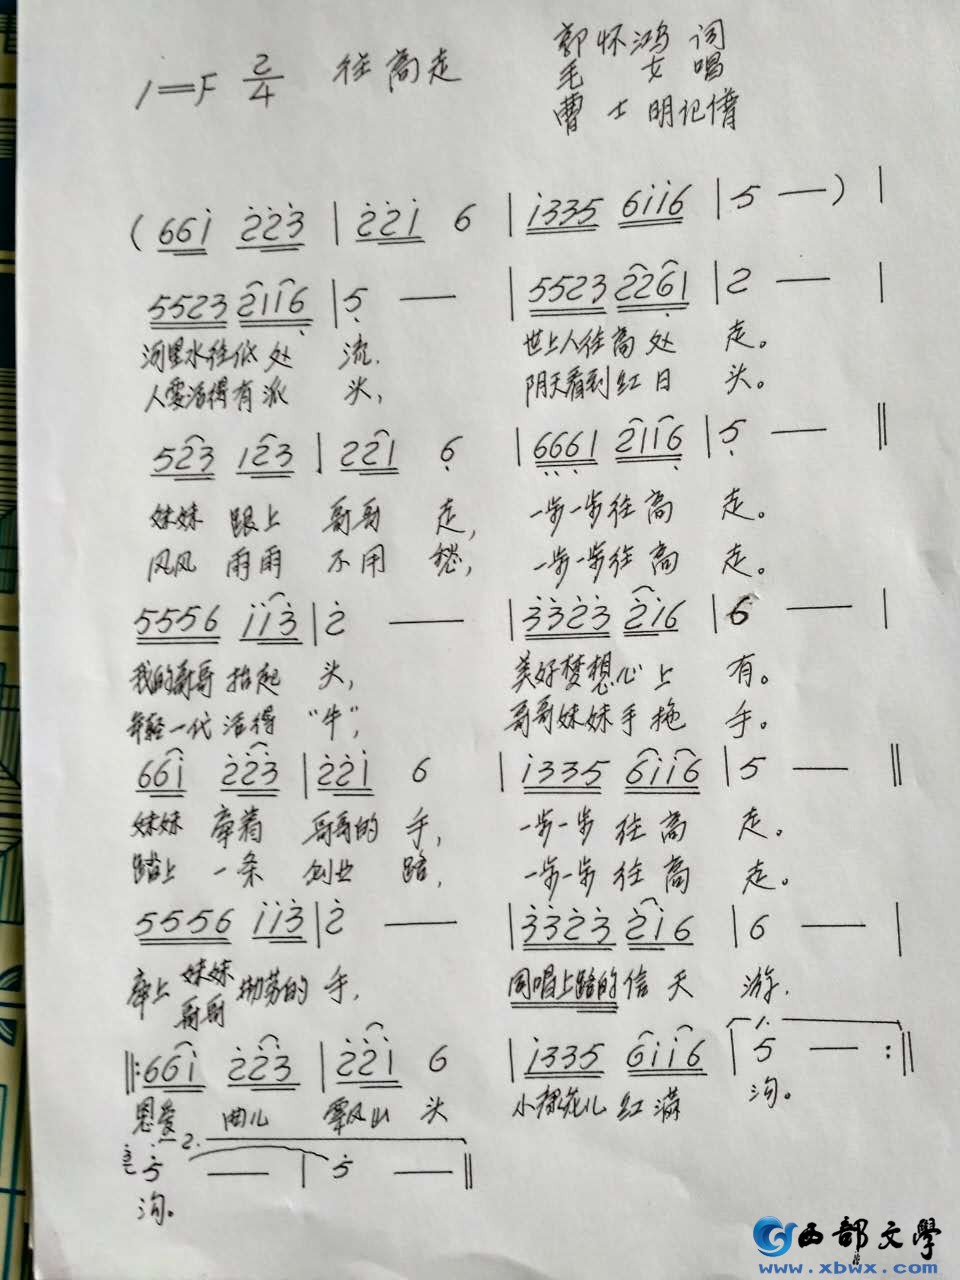 1=F 2/4 往高走
郭怀鸿 词
毛 女 唱
曹士明记谱
(661 223 | 221 6 | 1335 6116 | 5 — ) |
5523 2116 | 5 — | 5523 2261 | 2 — |
河里水往低处 流. 世上人往高处 走。
人要活得有派 头, 阴天看到红日 头。
523 123 | 221 6 | 6661 2116 | 5 — ‖
妹妹 跟上 哥哥 走, 一步一步往高 走。
风风 雨雨 不用 愁, 一步一步往高 走。
5556 113 | 2 — | 3323 216 | 6 — |
我的哥哥 抬起 头, 美好梦想心上 有。
年轻一代 活得 "牛", 哥哥妹妹手拖 手。
661 223 | 221 6 | 1335 6116 | 5 — ‖
妹妹 牵着 哥哥的 手, 一步一步 往高 走.
踏上 一条 创业 路, 一步一步 往高 走。
5556 113 | 2 — | 3323 216 | 6 — |
牵上 妹妹 勤劳的 手, 同唱上路的信天 游.
哥哥
‖:661 223 | 221 6 | 1335 6116 | 1. 5 — :‖
恩爱 曲儿 山头 儿 红 满 沟。
2. 5 — | 5 — ‖
沟。
西部文學
www.xbwx.com